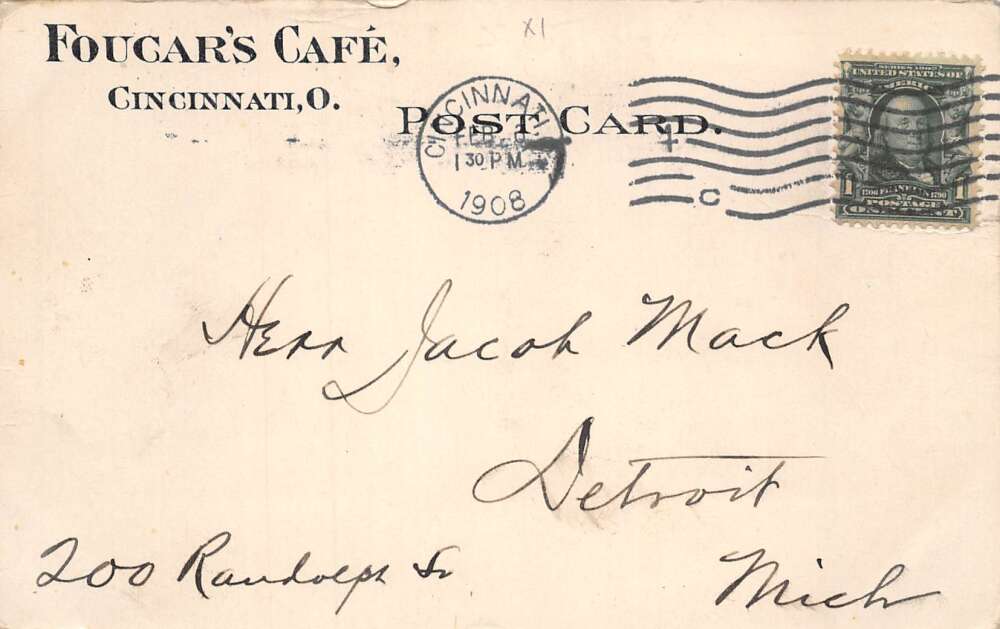 X1
FOUCAR'S CAFÉ,
CINCINNATI, O.
POST CARD.
CINCINNATI
FEB
1 30 PM
1908
C
SERIES 1902
UNITED STATES OF
AMERICA
1 1706 FRANKLIN 1790 1
POSTAGE
ONE CENT
Herr Jacob Mack
Detroit
200 Randolph St
Mich